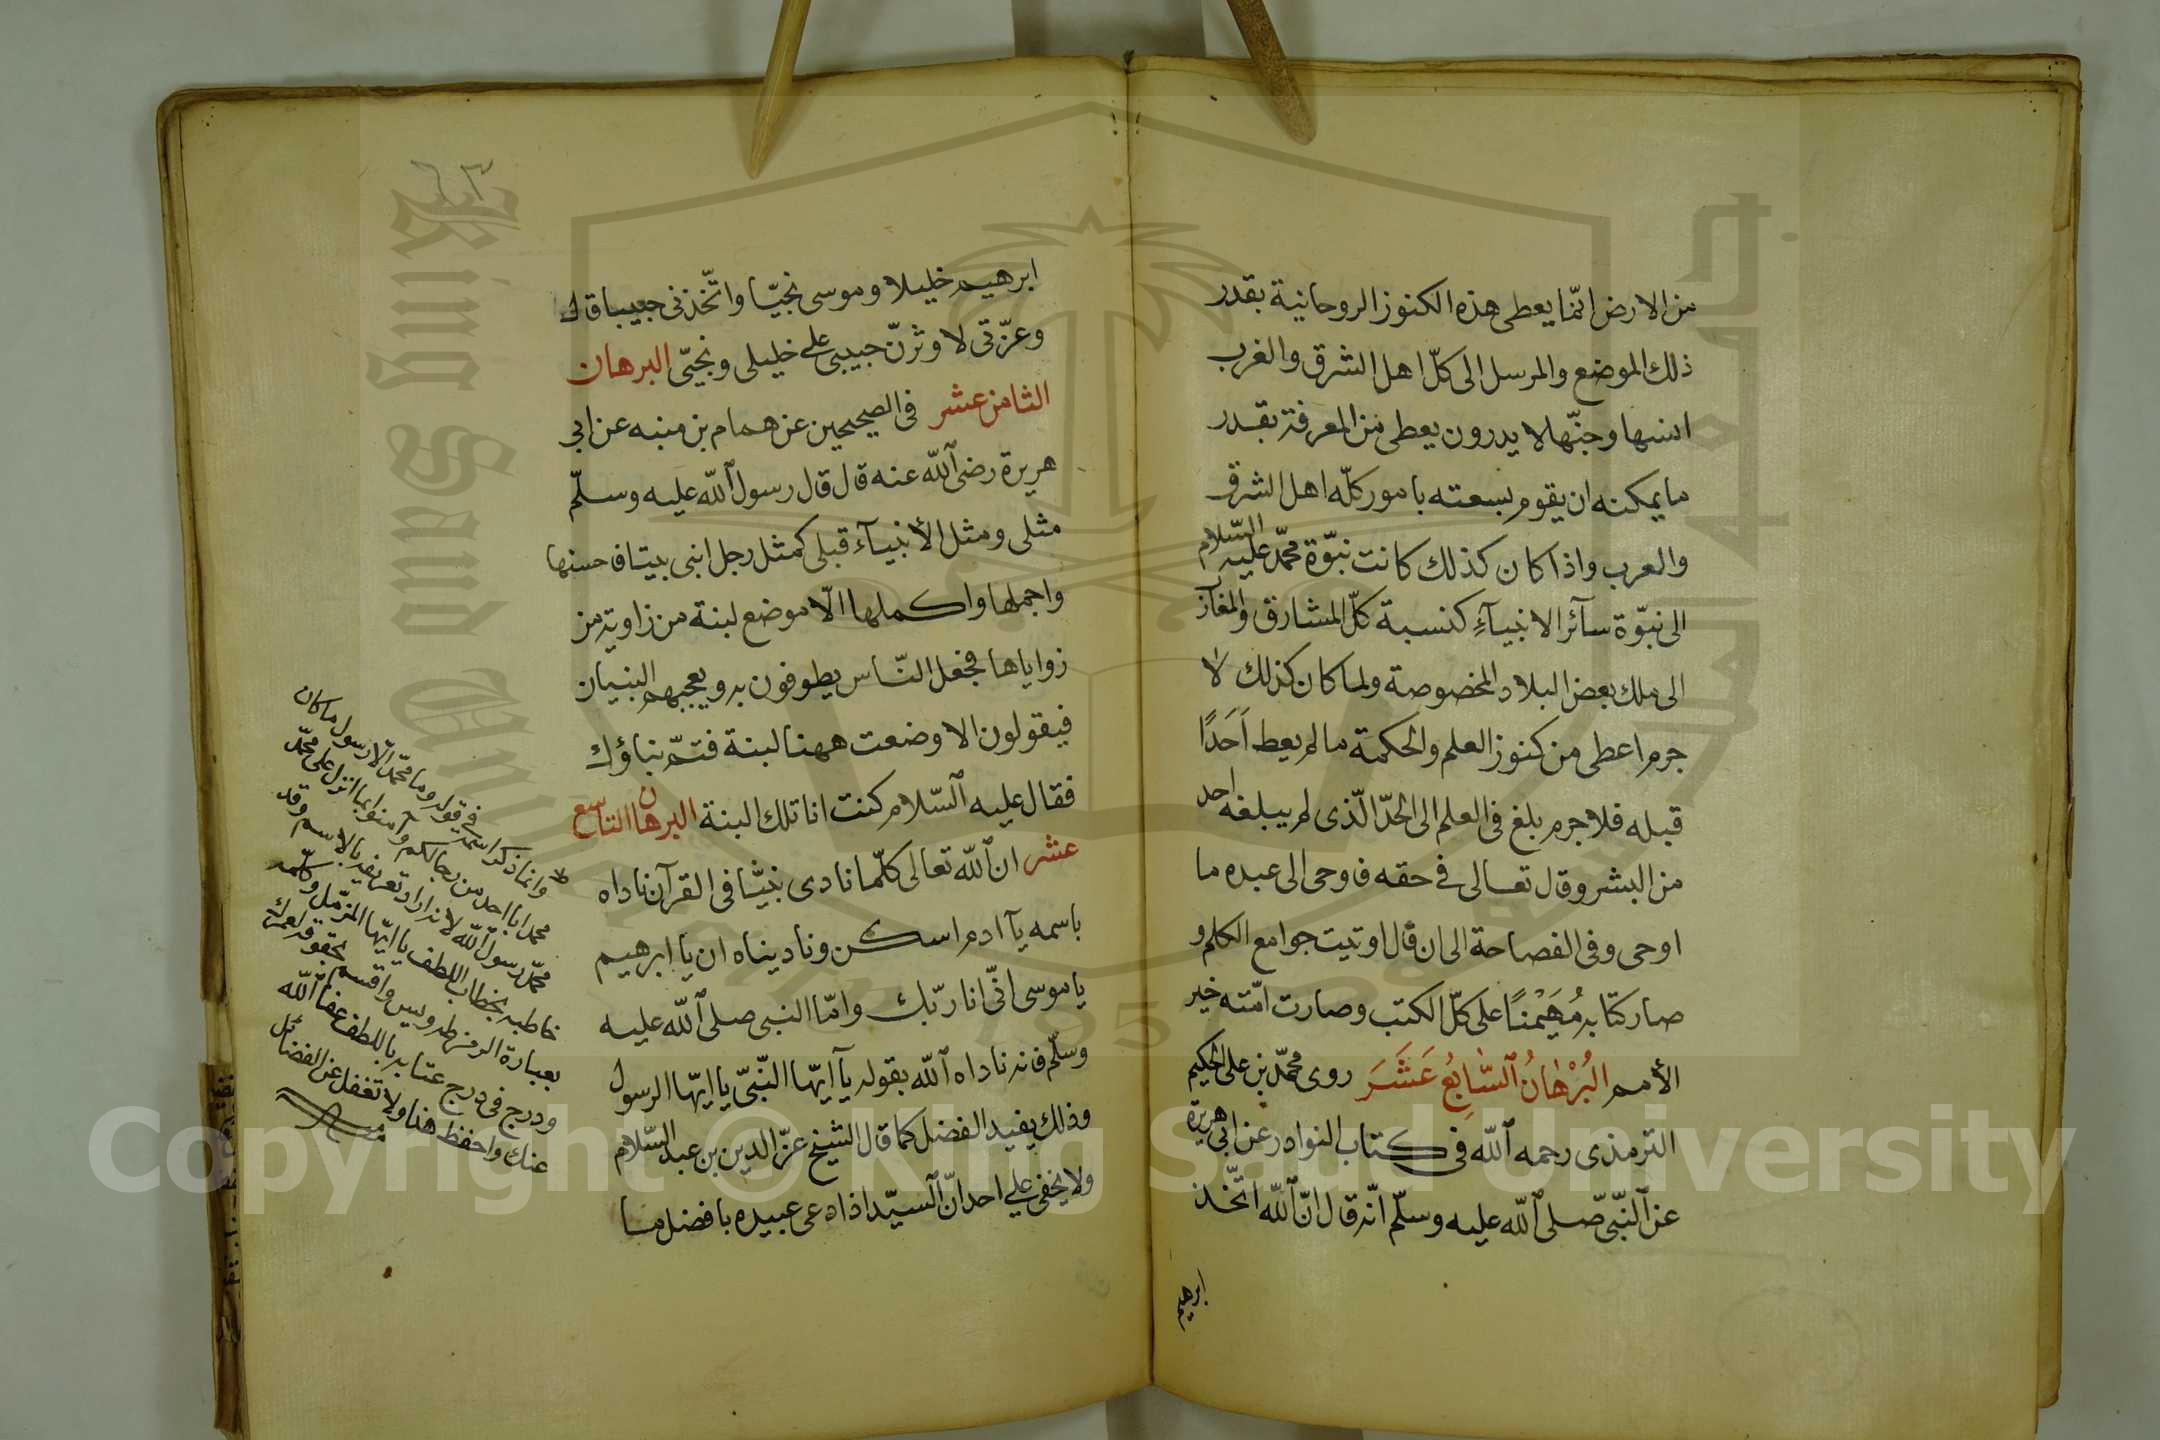 من الارض انّما يعطى هذه الكنوز الروحانية بقدر
ذلك الموضع والمرسل الى كلّ اهل الشرق والغرب
انسها وجنّها لا يدرون يعطى من المعرفة بقدر
ما يمكنه ان يقوم بسعته بامور كلّه اهل الشرق
والعرب واذا كان كذلك كانت نبوّة محمّد عليه السّلام
الى نبوّة سآئر الانبيآءِ كنسبة كلّ المشارق والمغارب
الى ملك بعض البلاد المخصوصة ولما كان كذلك لا
جرم اعطى من كنوز العلم والحكمة ما لم يعط اَحَدًا
قبله فلا جرم بلغ فى العلم الى الحدّ الّذى لم يبلغه احد
من البشر وقال تعالى فى حقه فاوحى الى عبده ما
اوحى وفى الفصاحة الى ان قال اوتيت جوامع الكلم و
صار كتابه مُهَيْمنًا على كلّ الكتب وصارت امّته خير
الأمم البُرْهَانُ ٱلسَّابِعُ عَشَرَ روى محمّد بن على الحكيم
الترمذى رحمه ٱللّه فى كتاب النوادر عن ابى هريرة
عن ٱلنّبىّ صّلى ٱللّه عليه وسلّم انّه قال انّ ٱللّه اتّخذ
ابرهيم
٦٣
ابرهيم خليلا وموسى نجيّا واتّخذنى حبيبا قال
وعزّتى لاوثرنّ حبيبى على خليلى ونجيّى البرهان
الثامن عشر فى الصحيحين عن همام بن منبه عن ابى
هريرة رضى ٱللّه عنه قال قال رسول ٱللّه عليه وسلّم
مثلى ومثل الأنبيآء قبلى كمثل رجل ابنى بيتا فاحسنها
واجملها واكملها الّا موضع لبنة من زاوية من
زواياها فجعل النّاس يطوفون به ويعجبهم البنيان
فيقولون الا وضعت ههنا لبنة فتمّ بناؤك
فقال عليه ٱلسّلام كنت انا تلك البنة البرهان التاسع
عشر ان ٱللّه تعالى كلّما نادى نبيّا فى القرآن ناداه
باسمه يآ ادم اسكن وناديناه ان يا ابرهيم
يا موسى انّى انا ربّك وامّا النبى صلى ٱللّه عليه
وسلّم فانه ناداه ٱللّه بقوله يآ ايّها النّبىّ يا ايّها الرسول
وذلك يفيد الفضل كما قال الشيخ عزّ الدين بن عبد السّلام
ولا يخفى على احد انّ ٱلسيّد اذا دعى عبيده بافضل ما
وانما ذكر اسمه فى قوله وما محمّد الّا رسول ما كان
محمد ابا احد من رجالكم وآمنوا بما انزل على محمّد
محمّد رسول ٱللّه لانه اراد تعريفه بالاسم وقد
خاطبه بخطاب اللطف يا ايّها المزّمل وكلّمه
بعبارة الرمز طه ويس واقسم بحقوقه لعمرك
ودرج فى درج عتابه باللطف عفا ٱللّه
عنك واحفظ هنا ولا تغفل عن الفضائل